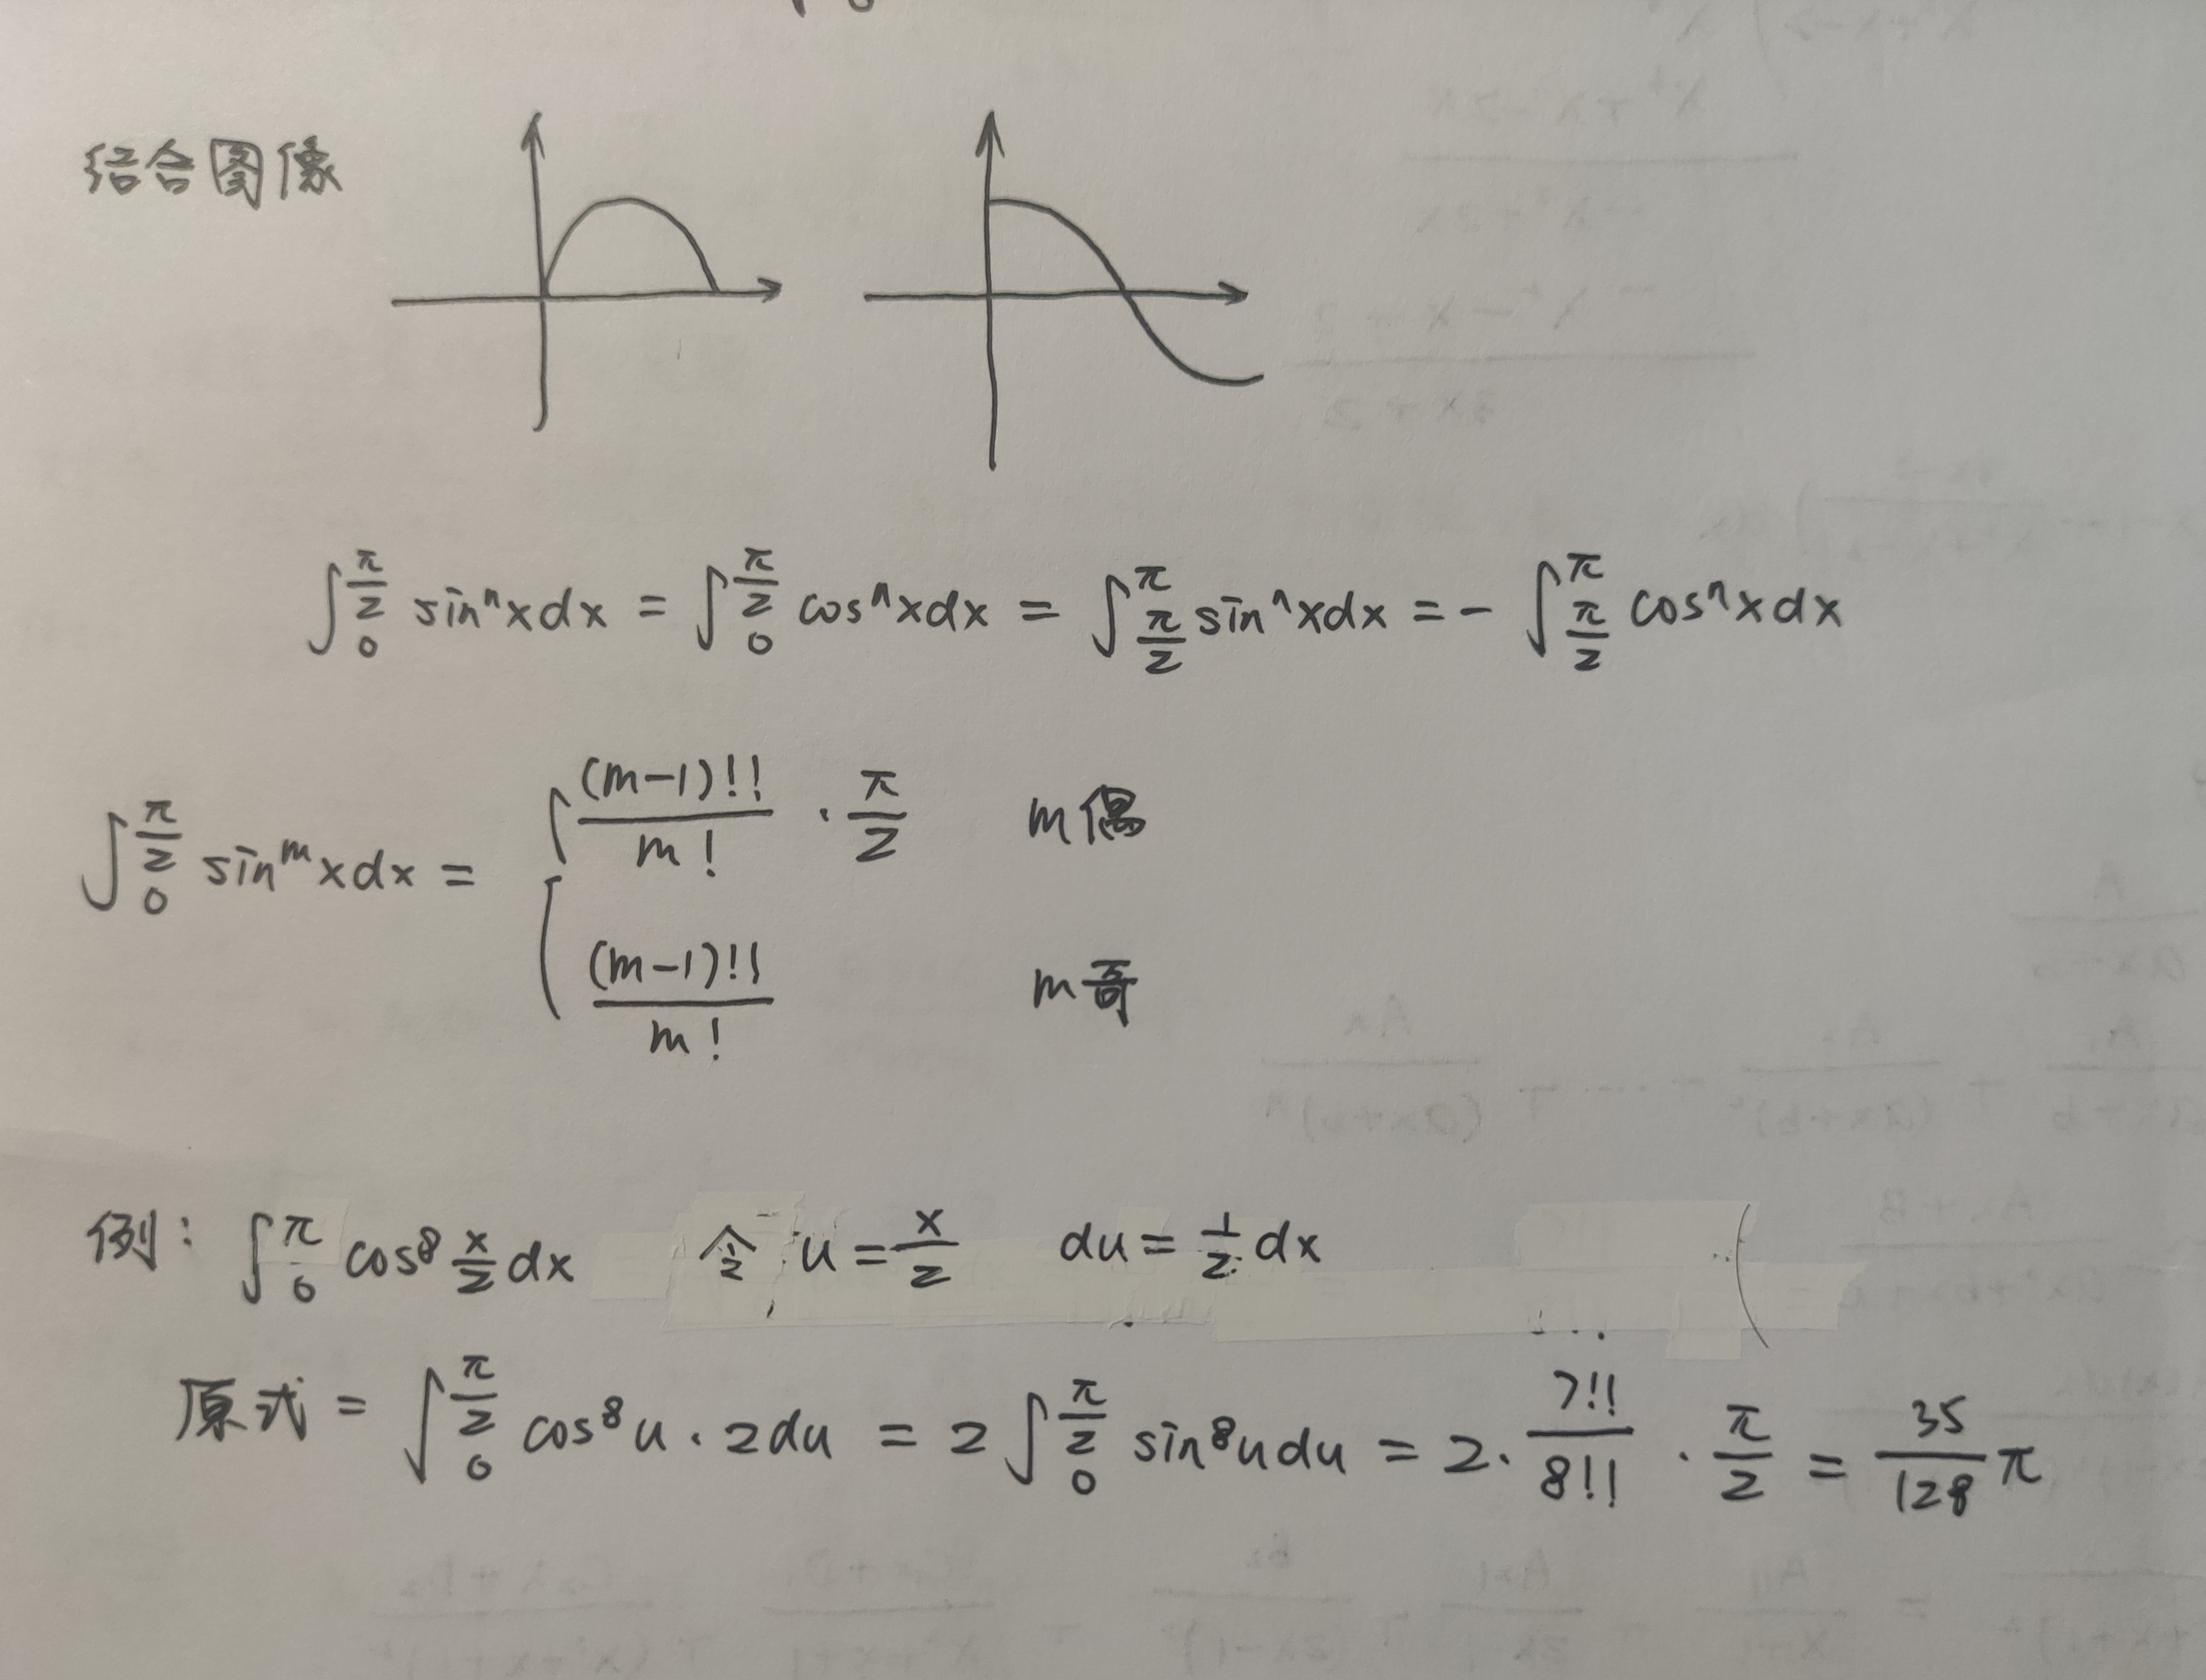 结合图像
∫_0^{π/2} sinⁿxdx = ∫_0^{π/2} cosⁿxdx = ∫_{π/2}^π sinⁿxdx = - ∫_{π/2}^π cosⁿxdx
∫_0^{π/2} sin^m xdx = { (m-1)!!/m! · π/2 m偶
(m-1)!!/m! m奇
例: ∫_0^π cos⁸ x/2 dx 令 u = x/2 du = 1/2 dx
原式 = ∫_0^{π/2} cos⁸u · 2du = 2∫_0^{π/2} sin⁸udu = 2 · 7!!/8!! · π/2 = 35/128 π